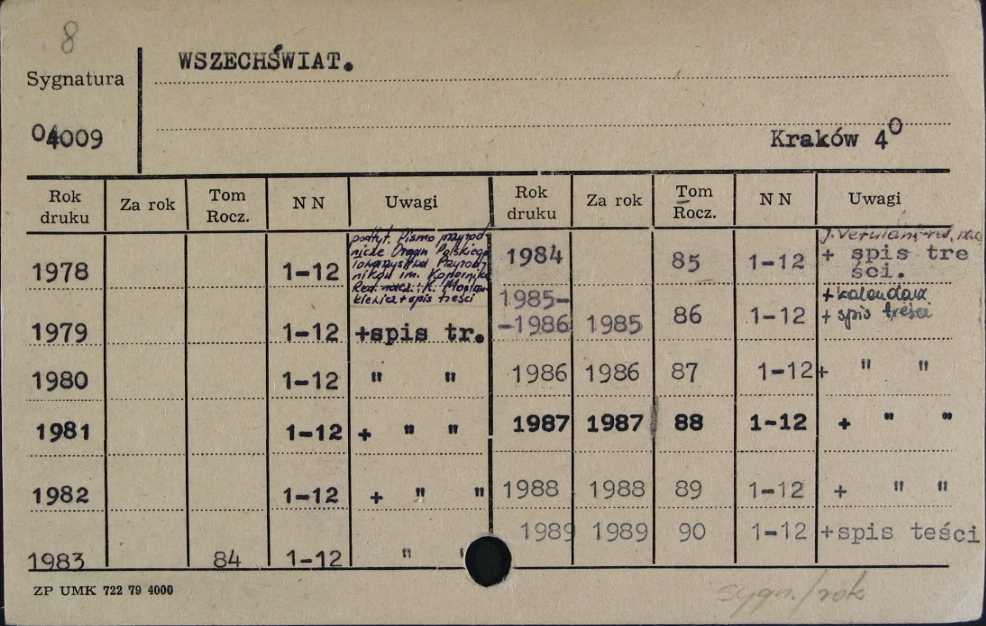 8
Sygnatura
WSZECHŚWIAT.
04009
Kraków 4⁰
Rok druku Za rok Tom Rocz. N N Uwagi Rok druku Za rok Tom Rocz. N N Uwagi
1978 1-12 podtyt. Pismo przyrod-
nicze Organ Polskiego
Towarzystwa Przyrod
ników im. Kopernika
Red. nacz.: K.
+ spis treści
1979 1-12 +spis tr.
1980 1-12 " "
1981 1-12 + " "
1982 1-12 + " "
1983 84 1-12 " "
1984 85 1-12 + spis tre
ści.
1985-
-1986 1985 86 1-12 + kalendarz
+ spis treści
1986 1986 87 1-12 + " "
1987 1987 88 1-12 + " "
1988 1988 89 1-12 + " "
1989 1989 90 1-12 +spis teści
ZP UMK 722 79 4000
sygn./rok